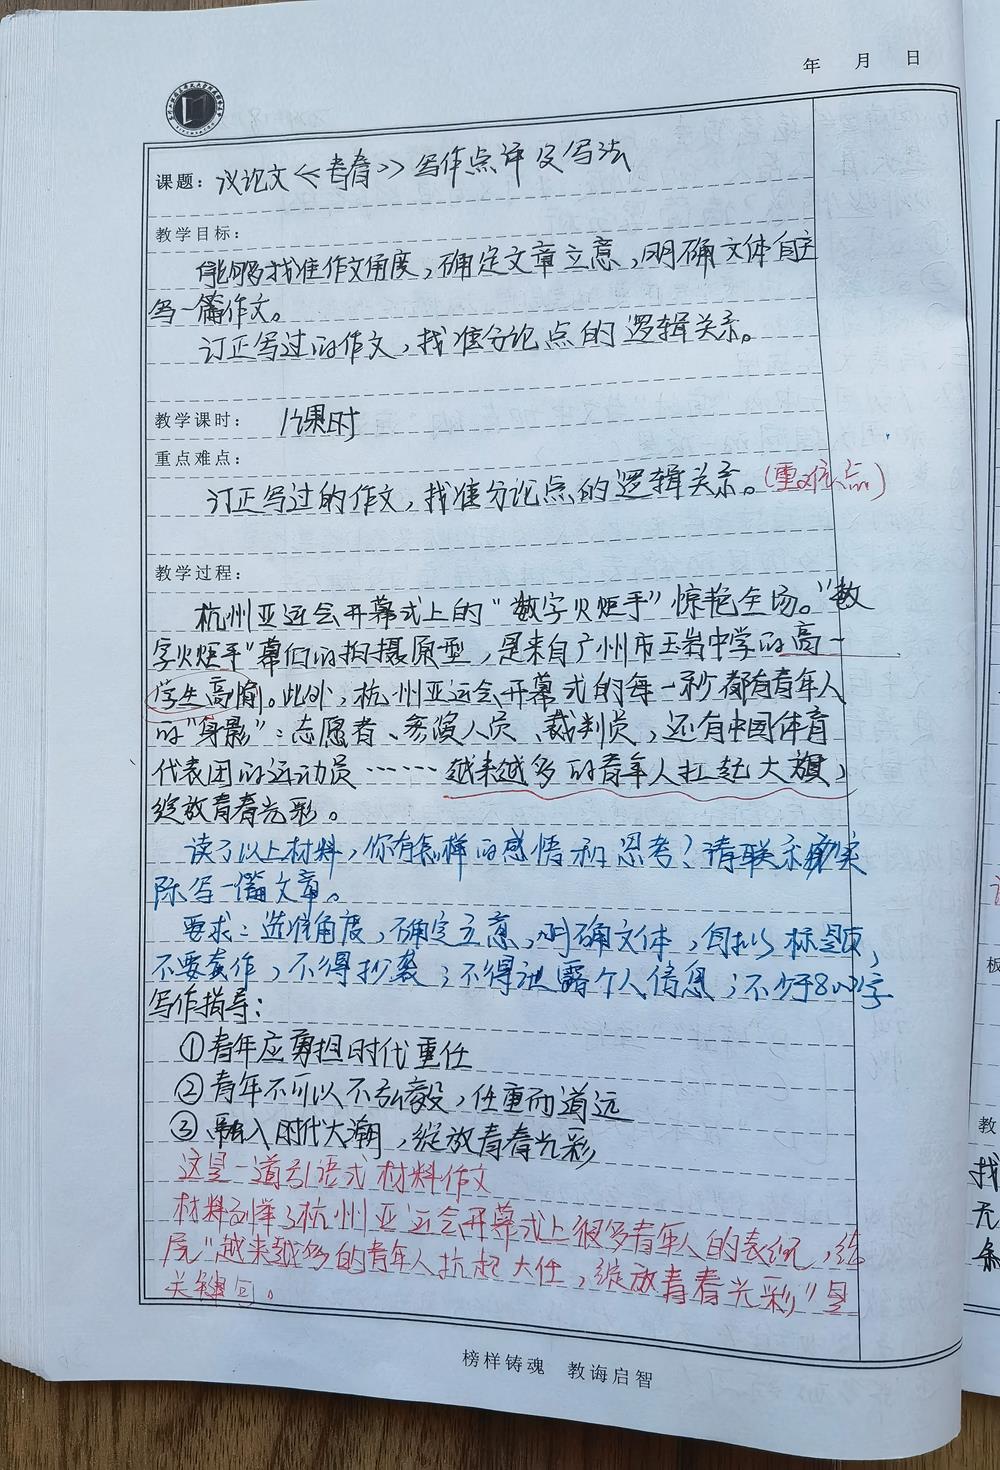 年 月 日
课题：议论文《青春》写作点评及写法
教学目标：
能够找准作文角度，确定文章立意，明确文体自主
写一篇作文。
订正写过的作文，找准分论点的逻辑关系。
教学课时： 1课时
重点难点：
订正写过的作文，找准分论点的逻辑关系。（重难点）
教学过程：
杭州亚运会开幕式上的“数字火炬手”惊艳全场。“数
字火炬手”幕后的拍摄原型，是来自广州市玉岩中学的高一
学生高愉。此外，杭州亚运会开幕式的每一秒都有青年人
的“身影”：志愿者、参演人员、裁判员，还有中国体育
代表团的运动员……越来越多的青年人扛起大旗，
绽放青春光彩。
读了以上材料，你有怎样的感悟和思考？请联系实
际写一篇文章。
要求：选准角度，确定立意，明确文体，自拟标题，
不要套作，不得抄袭；不得泄露个人信息；不少于800字
写作指导：
①青年应勇担时代重任
②青年不可以不弘毅，任重而道远
③融入时代大潮，绽放青春光彩
这是一道引语式材料作文
材料列举了杭州亚运会开幕式上很多青年人的表现，结
尾“越来越多的青年人扛起大任，绽放青春光彩”是
关键句。
榜样铸魂 教诲启智
板
教
找
无
条